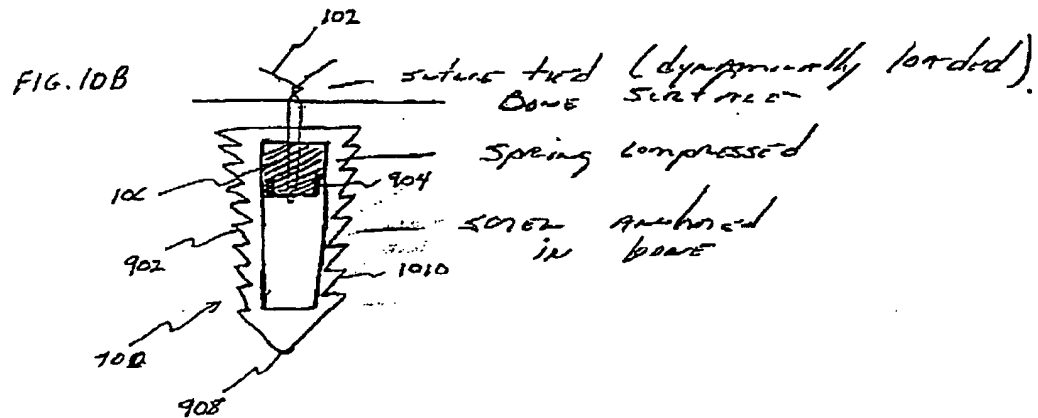 102
FIG. 10B
suture tied (dynamically loaded).
BONE SURFACE
spring compressed
106
904
screw anchored
in bone
902
1010
700
908